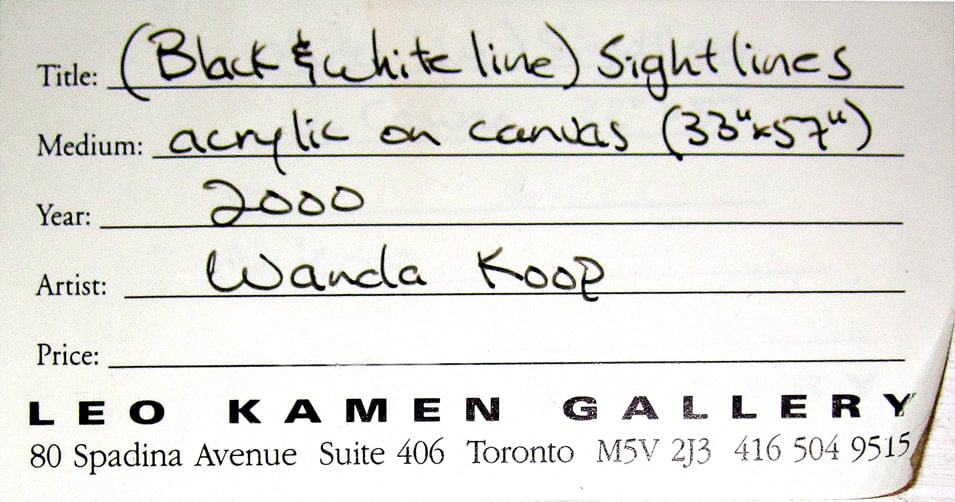 Title: (Black & white line) Sightlines
Medium: acrylic on canvas (33"x57")
Year: 2000
Artist: Wanda Koop
Price:
LEO KAMEN GALLERY
80 Spadina Avenue Suite 406 Toronto M5V 2J3 416 504 9515